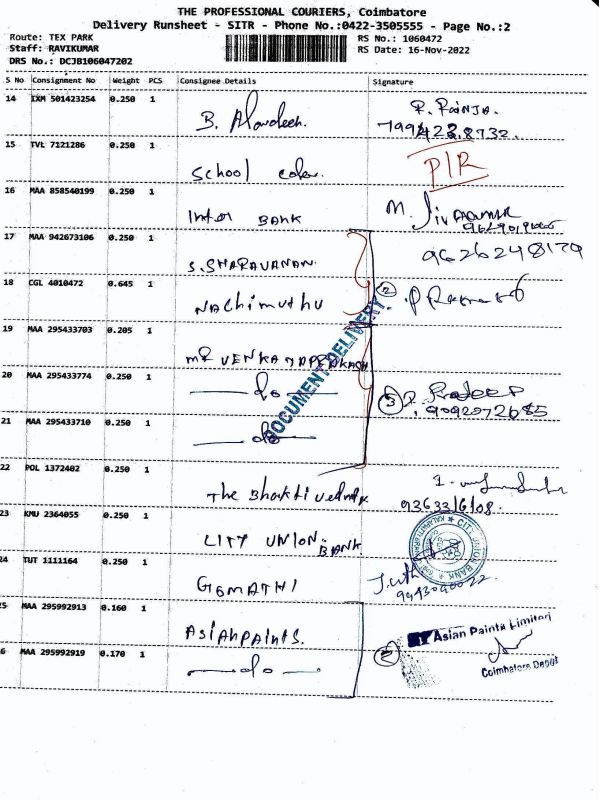 THE PROFESSIONAL COURIERS, Coimbatore
Delivery Runsheet - SITR - Phone No.:0422-3505555 - Page No.:2
Route: TEX PARK RS No.: 1060472
Staff: RAVIKUMAR RS Date: 16-Nov-2022
DRS No.: DCJB106047202
S No Consignment No Weight PCS Consignee Details Signature
14 IXM 501423254 0.250 1
B.
15 TVL 7121286 0.250 1
School P/R
16 MAA 858540199 0.250 1
Inter BANK M.
17 MAA 942673106 0.250 1
S.SHARAVANAN. 9626248179
18 CGL 4010472 0.645 1
Nachimuthu 2
19 MAA 295433703 0.205 1
MR
DOCUMENT DELIVERY
20 MAA 295433774 0.250 1
do 3 Pradeep
9092072685
21 MAA 295433710 0.250 1
do
22 POL 1372402 0.250 1
The Bhakti
23 KMU 2364055 0.250 1
CITY UNION BANK CITY UNION BANK
24 TUT 1111164 0.250 1
GOMATHI
25 MAA 295992913 0.160 1
Asianpaints. Asian Paints Limited
26 MAA 295992919 0.170 1
do 2 Coimbatore Depot